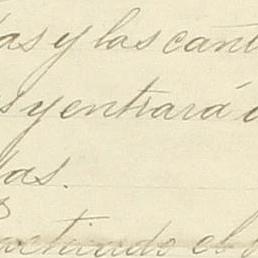 as y las cant
s y entrará
las.
actuando el